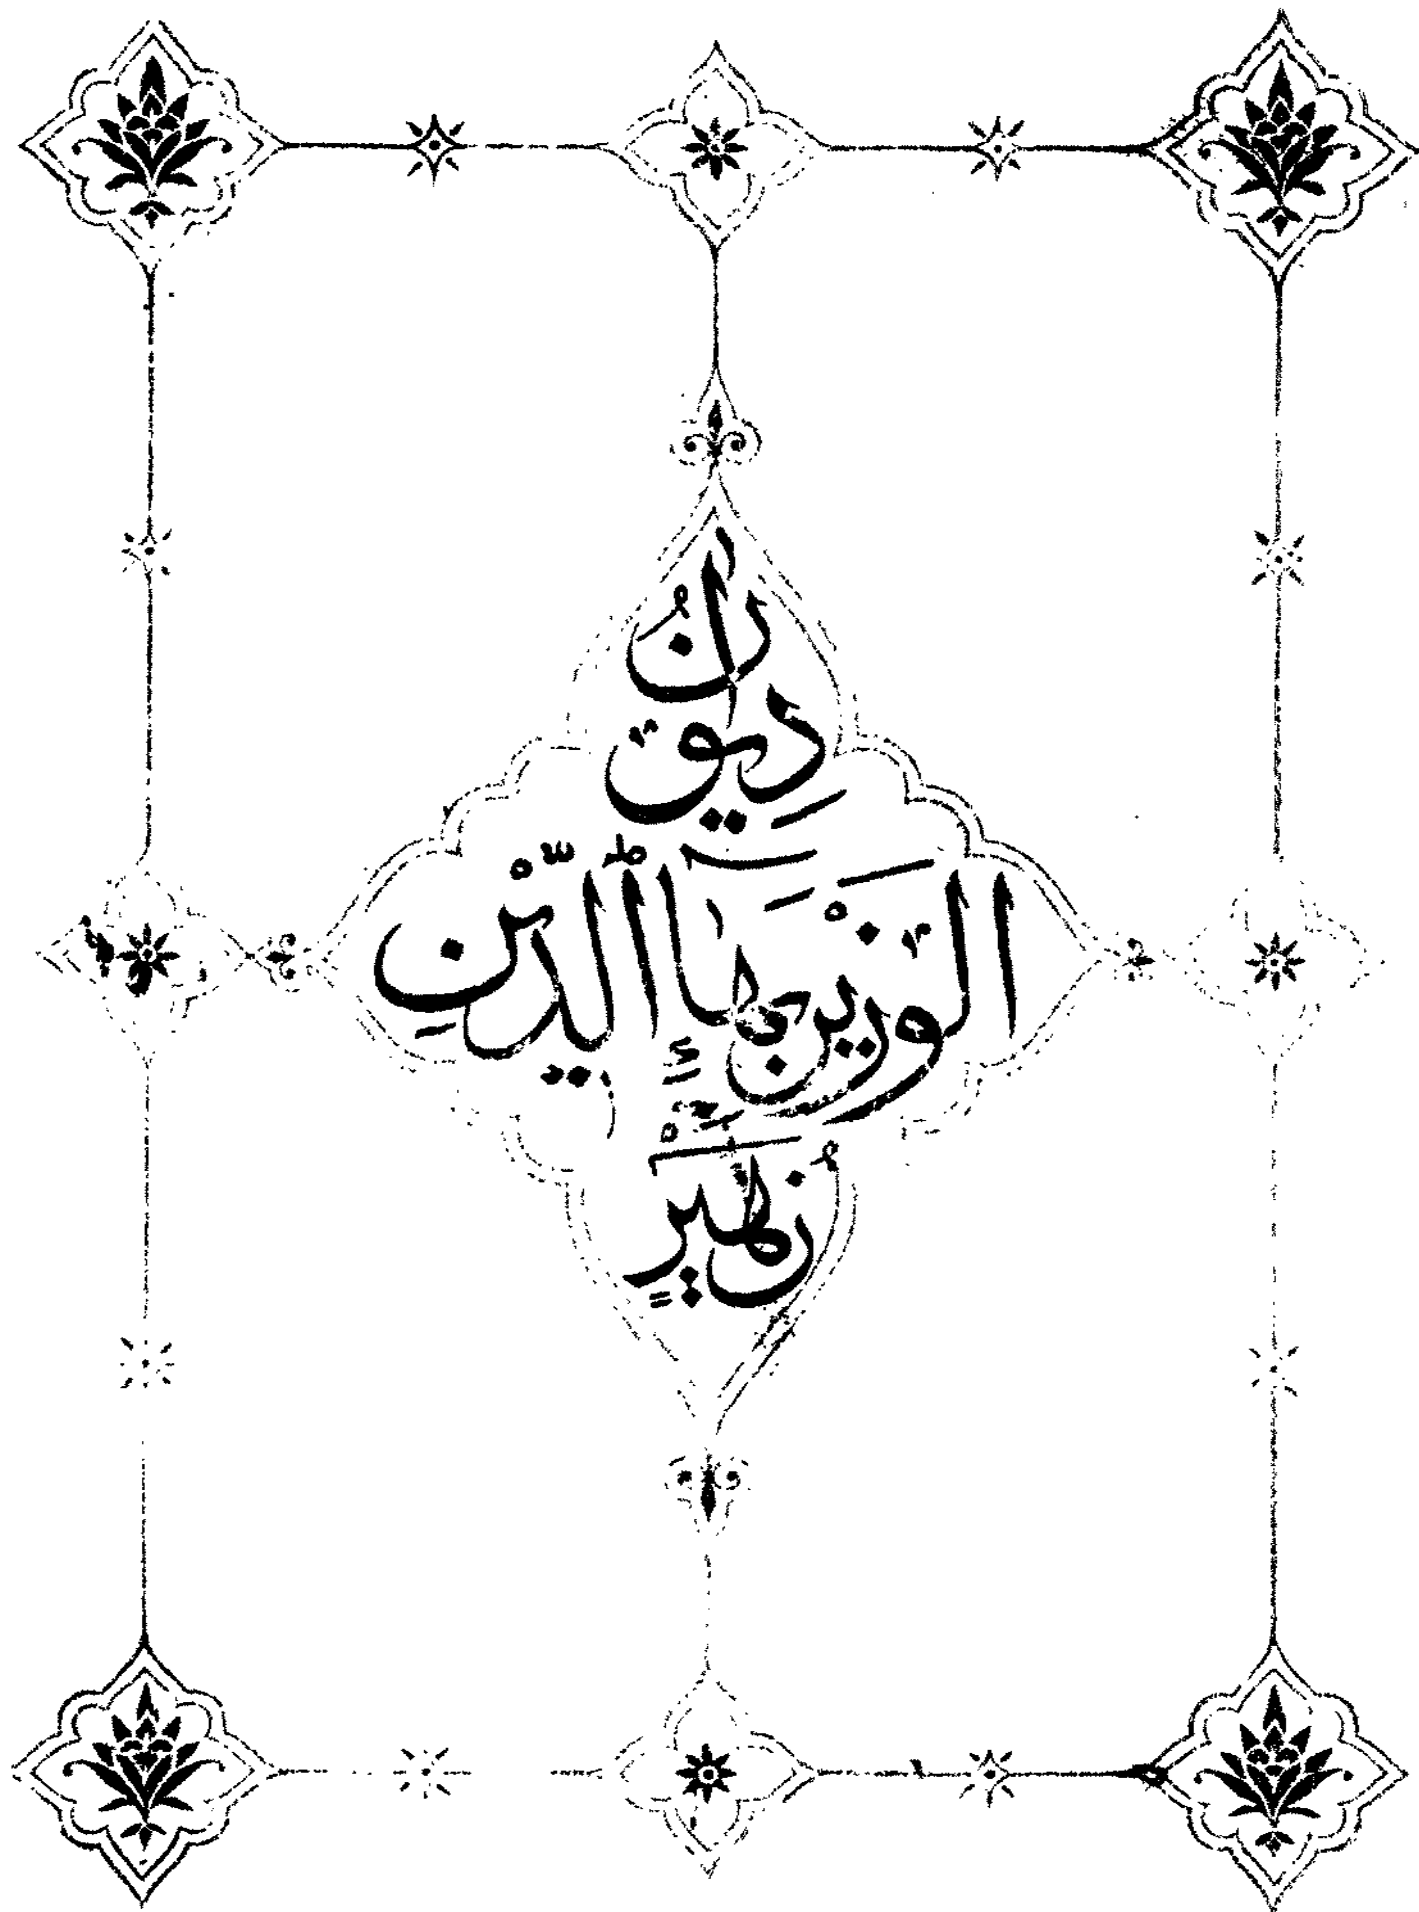 دِيوَانُ
الْوَزِيْرِ بَهَاءِ الدِّيْنِ
زُهَيْرٍ